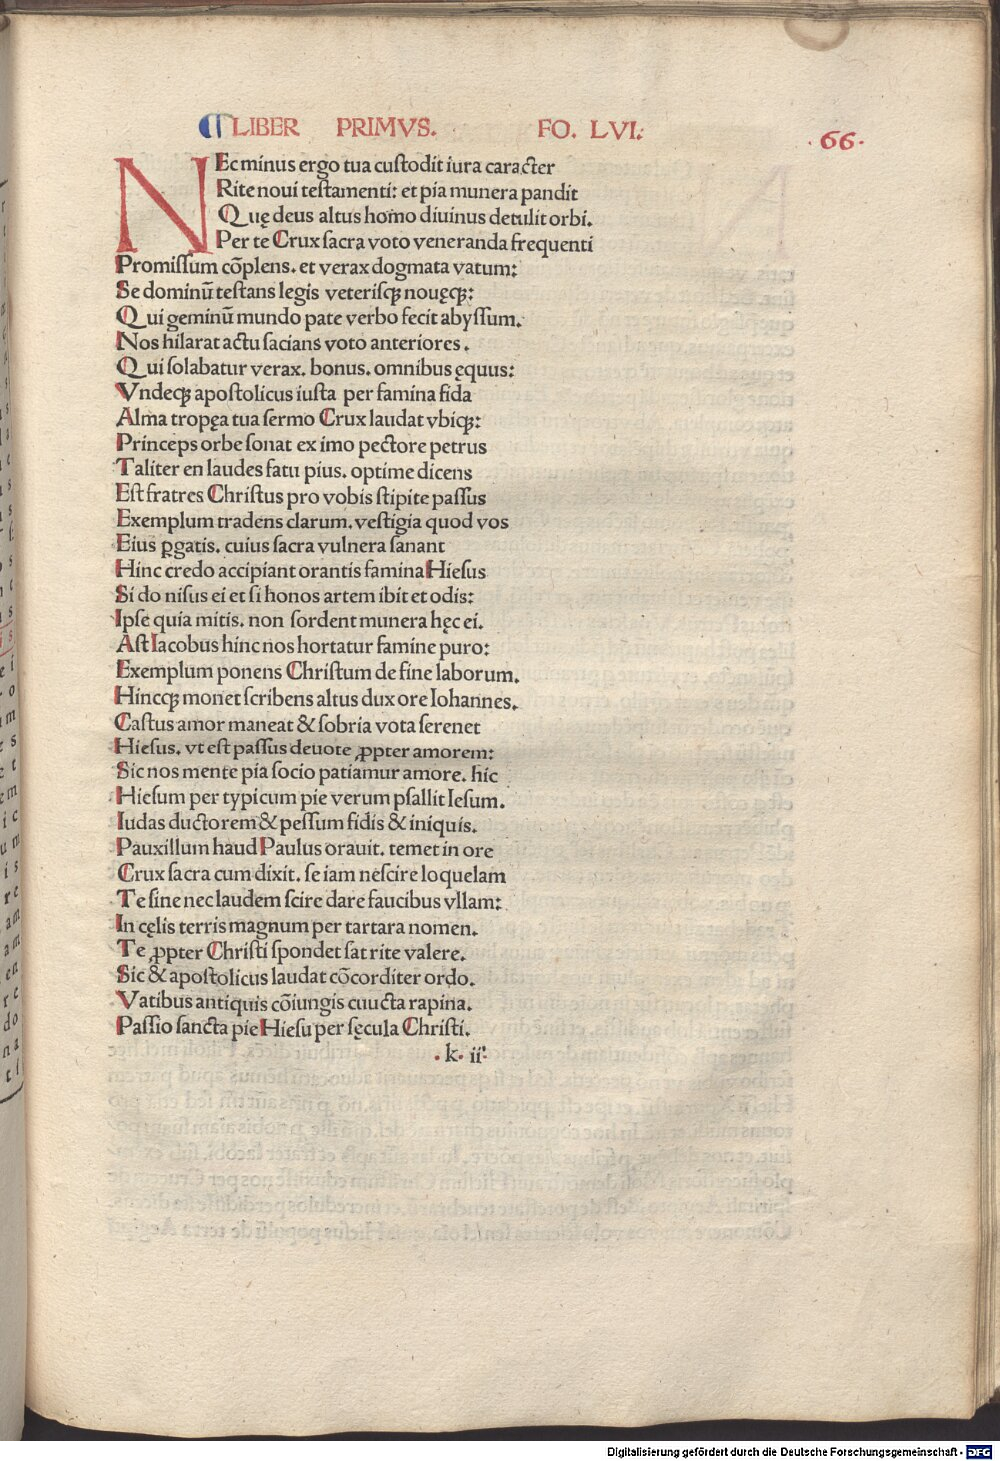 ¶ LIBER PRIMVS. FO. LVI.
.66.
NEc minus ergo tua custodit iura caracter
Rite noui testamenti: et pia munera pandit
Quę deus altus homo diuinus detulit orbi.
Per te Crux sacra voto veneranda frequenti
Promissum cōplens. et verax dogmata vatum:
Se dominū testans legis veterisqꝫ nouęqꝫ:
Qui geminū mundo pate verbo fecit abyssum.
Nos hilarat actu sacians voto anteriores.
Qui solabatur verax. bonus. omnibus ęquus:
Vndeqꝫ apostolicus iusta per famina fida
Alma tropęa tua sermo Crux laudat vbiqꝫ:
Princeps orbe sonat ex imo pectore petrus
Taliter en laudes fatu pius. optime dicens
Est fratres Christus pro vobis stipite passus
Exemplum tradens clarum. vestigia quod vos
Eius ꝑgatis. cuius sacra vulnera sanant
Hinc credo accipiant orantis famina Hiesus
Si do nisus ei et si honos artem ibit et odis:
Ipse quia mitis. non sordent munera hęc ei.
Ast Iacobus hinc nos hortatur famine puro:
Exemplum ponens Christum de fine laborum.
Hinccqꝫ monet scribens altus dux ore Iohannes.
Castus amor maneat & sobria vota serenet
Hiesus. vt est passus deuote ꝓpter amorem:
Sic nos mente pia socio patiamur amore. hic
Hiesum per typicum pie verum psallit Iesum.
Iudas ductorem & pessum fidis & iniquis.
Pauxillum haud Paulus orauit. temet in ore
Crux sacra cum dixit. se iam nescire loquelam
Te sine nec laudem scire dare faucibus vllam:
In cęlis terris magnum per tartara nomen.
Te ꝓpter Christi spondet sat rite valere.
Sic & apostolicus laudat cōcorditer ordo.
Vatibus antiquis cōiungis cuucta rapina.
Passio sancta pie Hiesu per sęcula Christi.
. k. ii
Digitalisierung gefördert durch die Deutsche Forschungsgemeinschaft - DFG